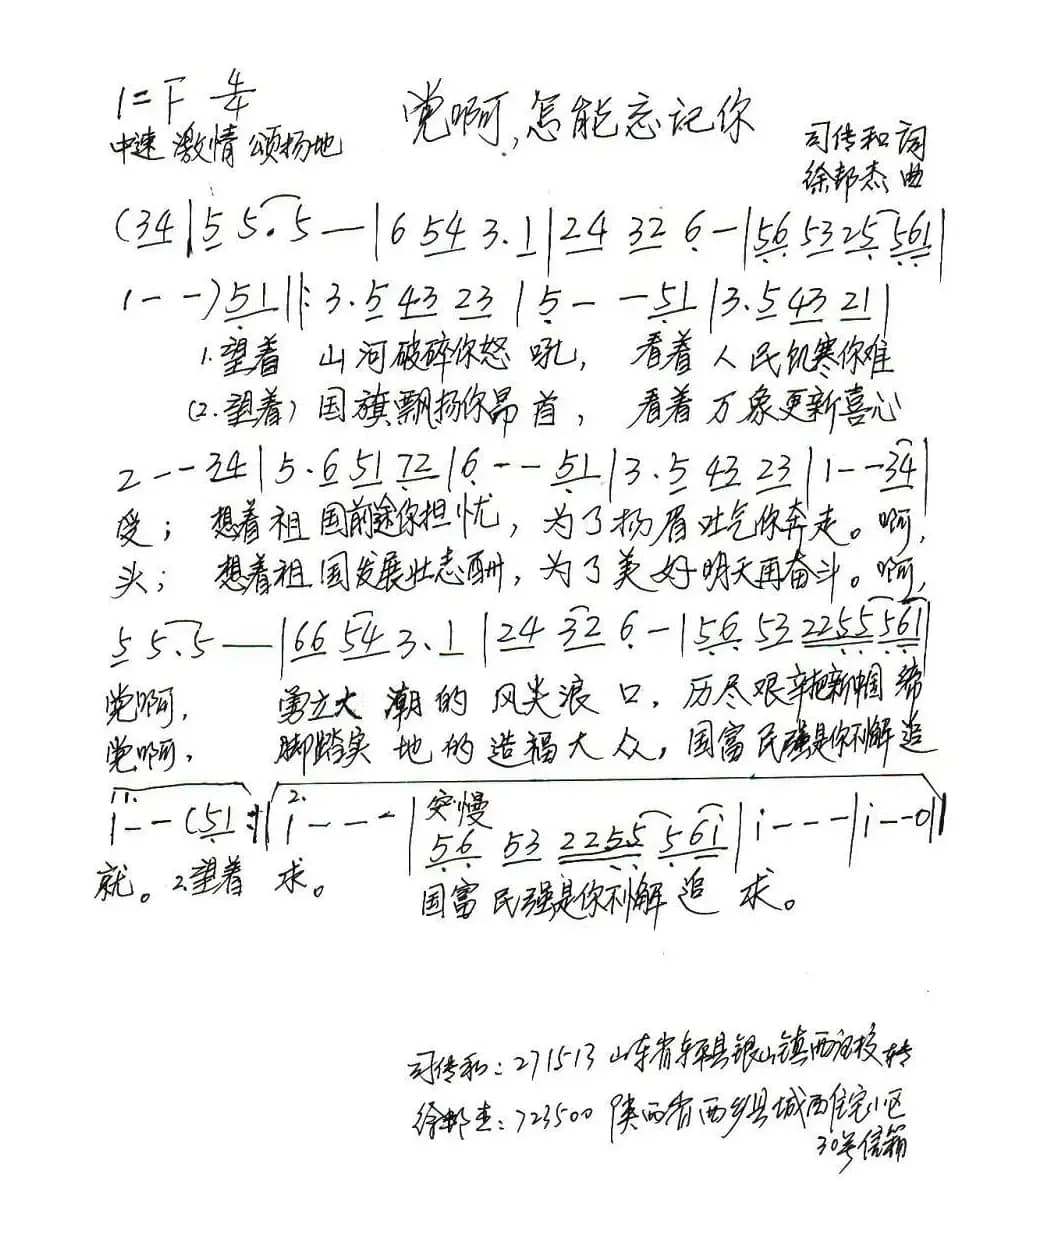 1=F 4/4
党啊,怎能忘记你
中速 激情 颂扬地
司传和 词
徐邦杰 曲
(34|5 5.5—|6 54 3.1|24 32 6—|56 53 25 561|
1--)51||:3.5 43 23|5---51|3.5 43 21|
1.望着 山河破碎你怒吼, 看着人民饥寒你难
(2.望着)国旗飘扬你昂首, 看着万象更新喜心
2--34|5.6 51 72|6--51|3.5 43 23|1--34|
受; 想着祖国前途你担忧, 为了扬眉吐气你奔走。啊,
头; 想着祖国发展壮志酬, 为了美好明天再奋斗。啊,
5 5.5—|66 54 3.1|24 32 6—|56 53 2255 561|
党啊, 勇立大潮的风尖浪口, 历尽艰辛把新中国缔
党啊, 脚踏实地的造福大众, 国富民强是你不懈追
1.
1--(51:|| 2. i---|突慢
56 53 2255 561|i---|i--0||
就。2.望着 求。 国富民强是你不懈追求。
司传和:271513 山东省东平县银山镇西汪校转
徐邦杰:723500 陕西省西乡县城西住宅小区
30号信箱